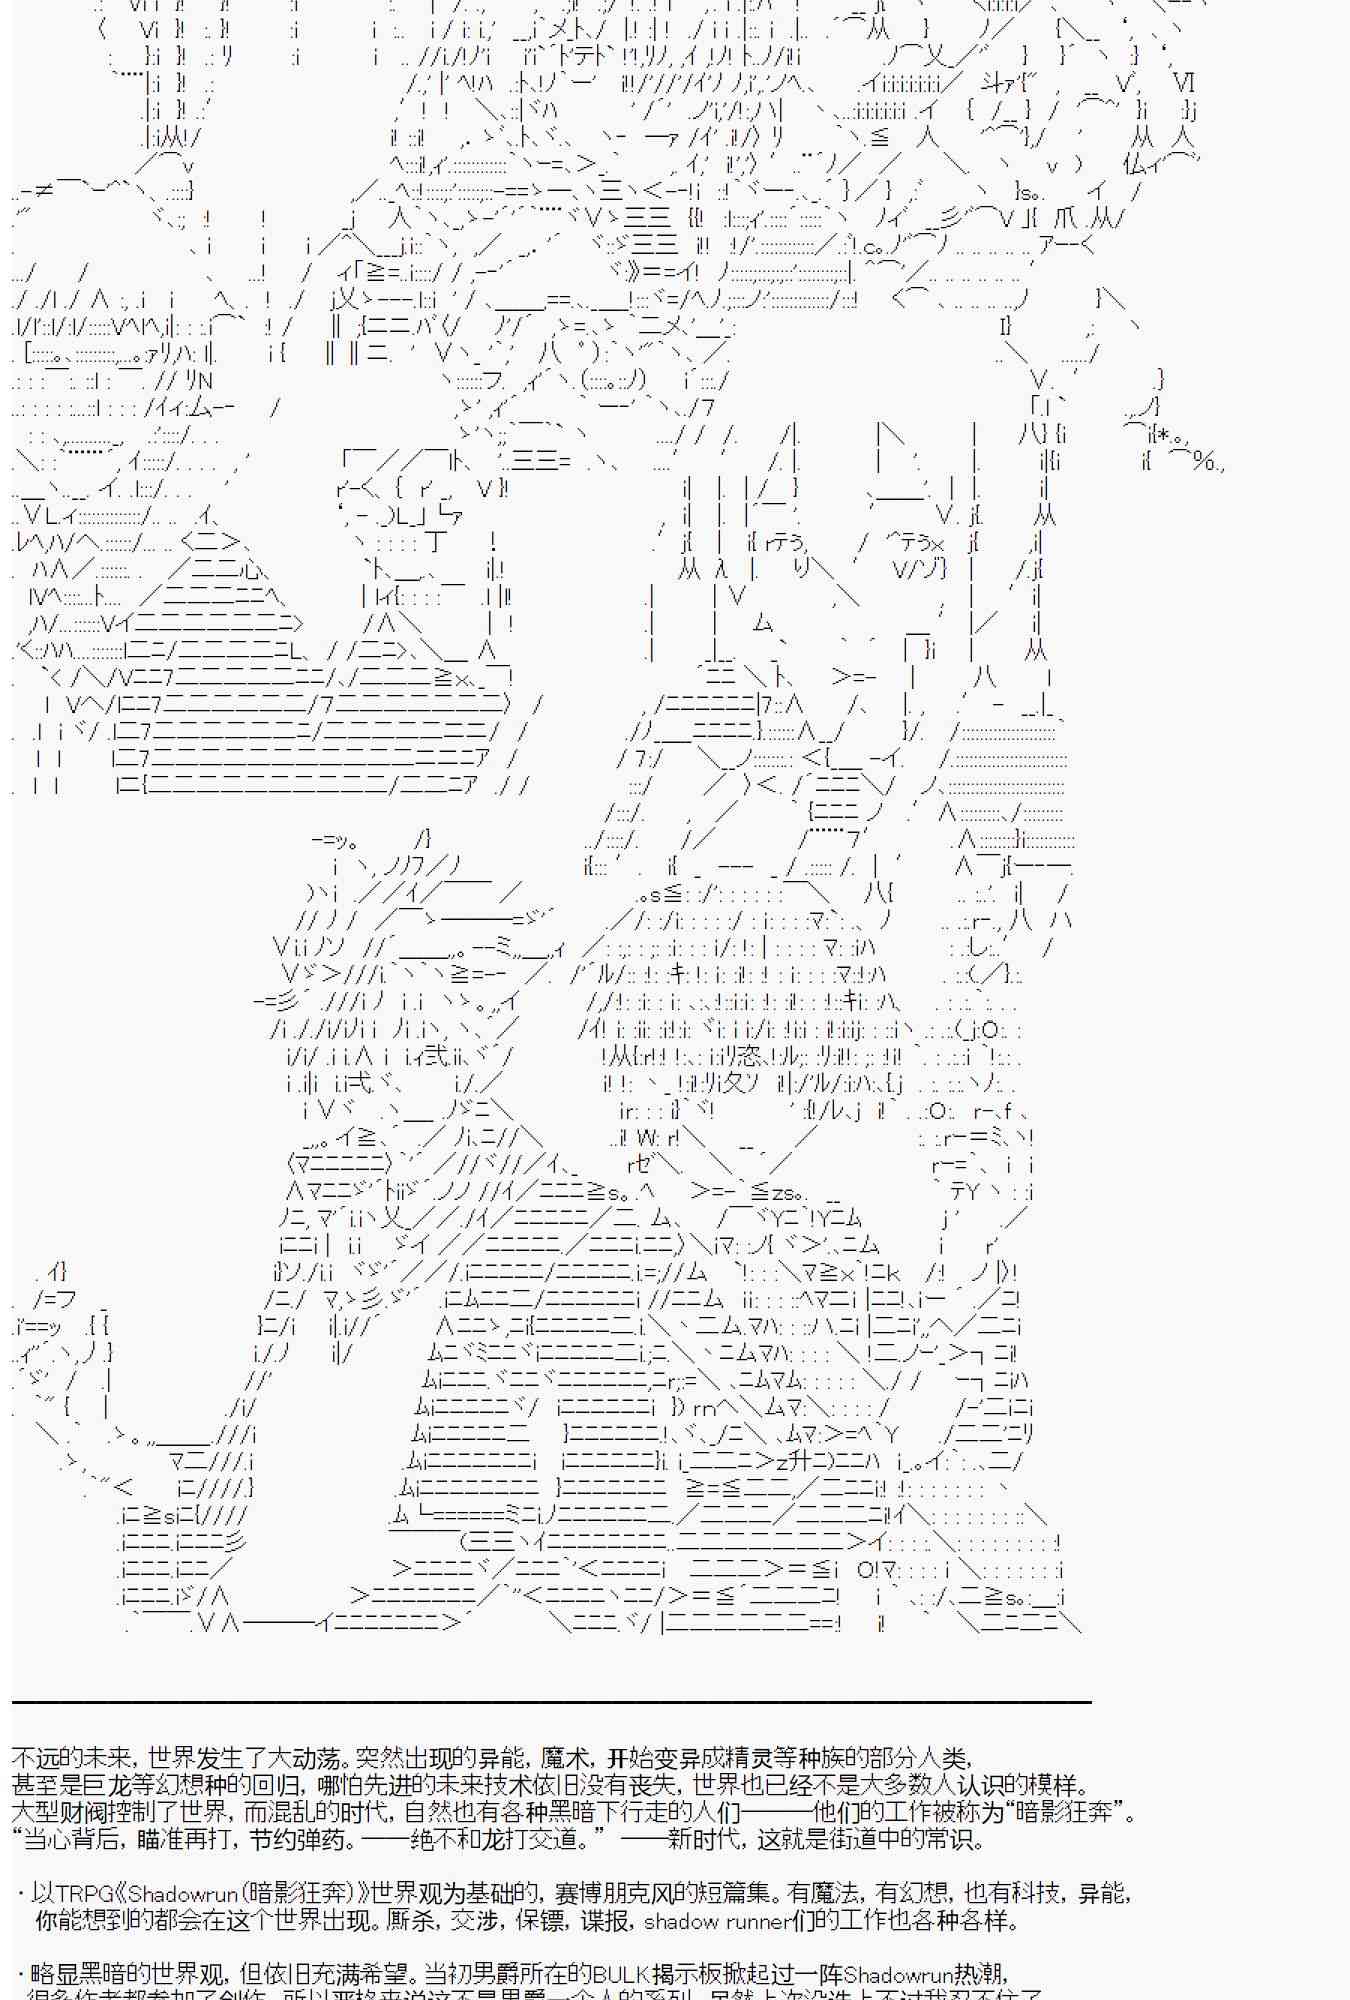 不远的未来，世界发生了大动荡。突然出现的异能，魔术，开始变异成精灵等种族的部分人类，
甚至是巨龙等幻想种的回归，哪怕先进的未来技术依旧没有丧失，世界也已经不是大多数人认识的模样。
大型财阀控制了世界，而混乱的时代，自然也有各种黑暗下行走的人们———他们的工作被称为“暗影狂奔”。
“当心背后，瞄准再打，节约弹药。——绝不和龙打交道。” ——新时代，这就是街道中的常识。
·以TRPG《Shadowrun（暗影狂奔）》世界观为基础的，赛博朋克风的短篇集。有魔法，有幻想，也有科技，异能，
你能想到的都会在这个世界出现。厮杀，交涉，保镖，谍报，shadow runner们的工作也各种各样。
·略显黑暗的世界观，但依旧充满希望。当初男爵所在的BULK揭示板掀起过一阵Shadowrun热潮，
很多作者都参加了创作，所以严格来说这不是男爵一个人的系列。虽然上次没选上不过我忍不住了